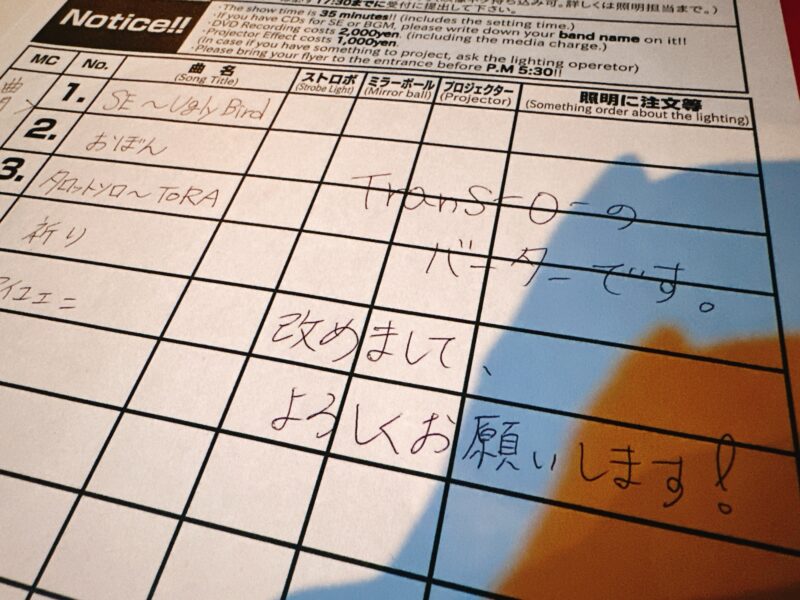 17:30までに受付に提出して下さい。
Notice!!
・The show time is 35 minutes!! (includes the setting time.)
・If you have CDs for SE or BGM, please write down your band name on it!!
・DVD Recording costs 2,000yen. (including the media charge.)
・Projector Effect costs 1,000yen.
(In case if you have something to project, ask the lighting operetor)
・Please bring your flyer to the entrance before P.M 5:30!!
MC No. 曲 名 ストロボ ミラーボール プロジェクター 照明に注文等
(Song Title) (Strobe Light) (Mirror ball) (Projector) (Something order about the lighting)
1. SE～Ugly Bird
2. おぼん
3. タロットソロ～TORA
祈り
アイエエニ
Trans-O-の
バーターです。
改めまして、
よろしくお願いします!